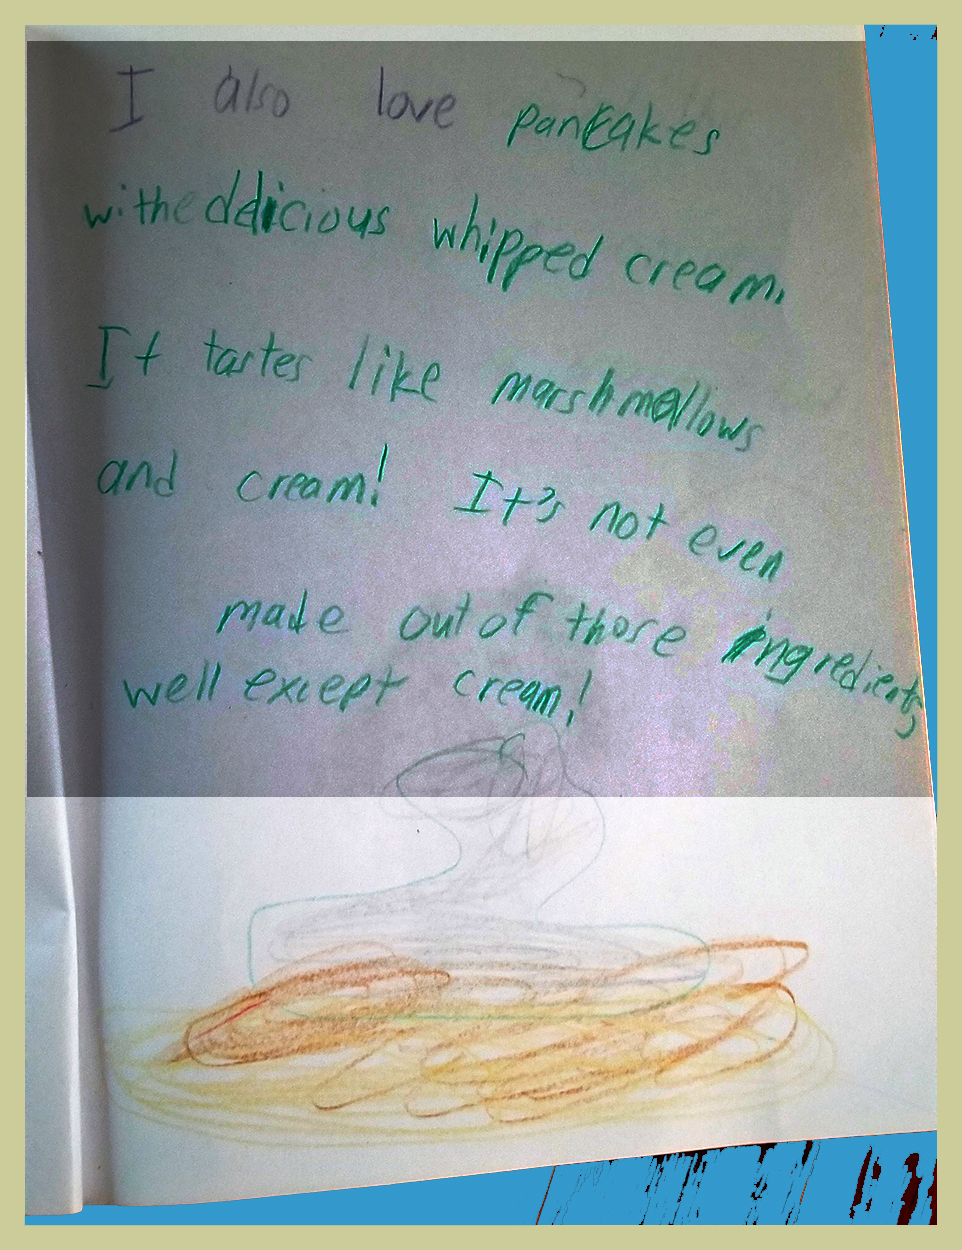 I also love pancakes
withe ddicious whipped cream.
It tastes like marshmallows
and cream! It's not even
made out of those ingredients,
well except cream!